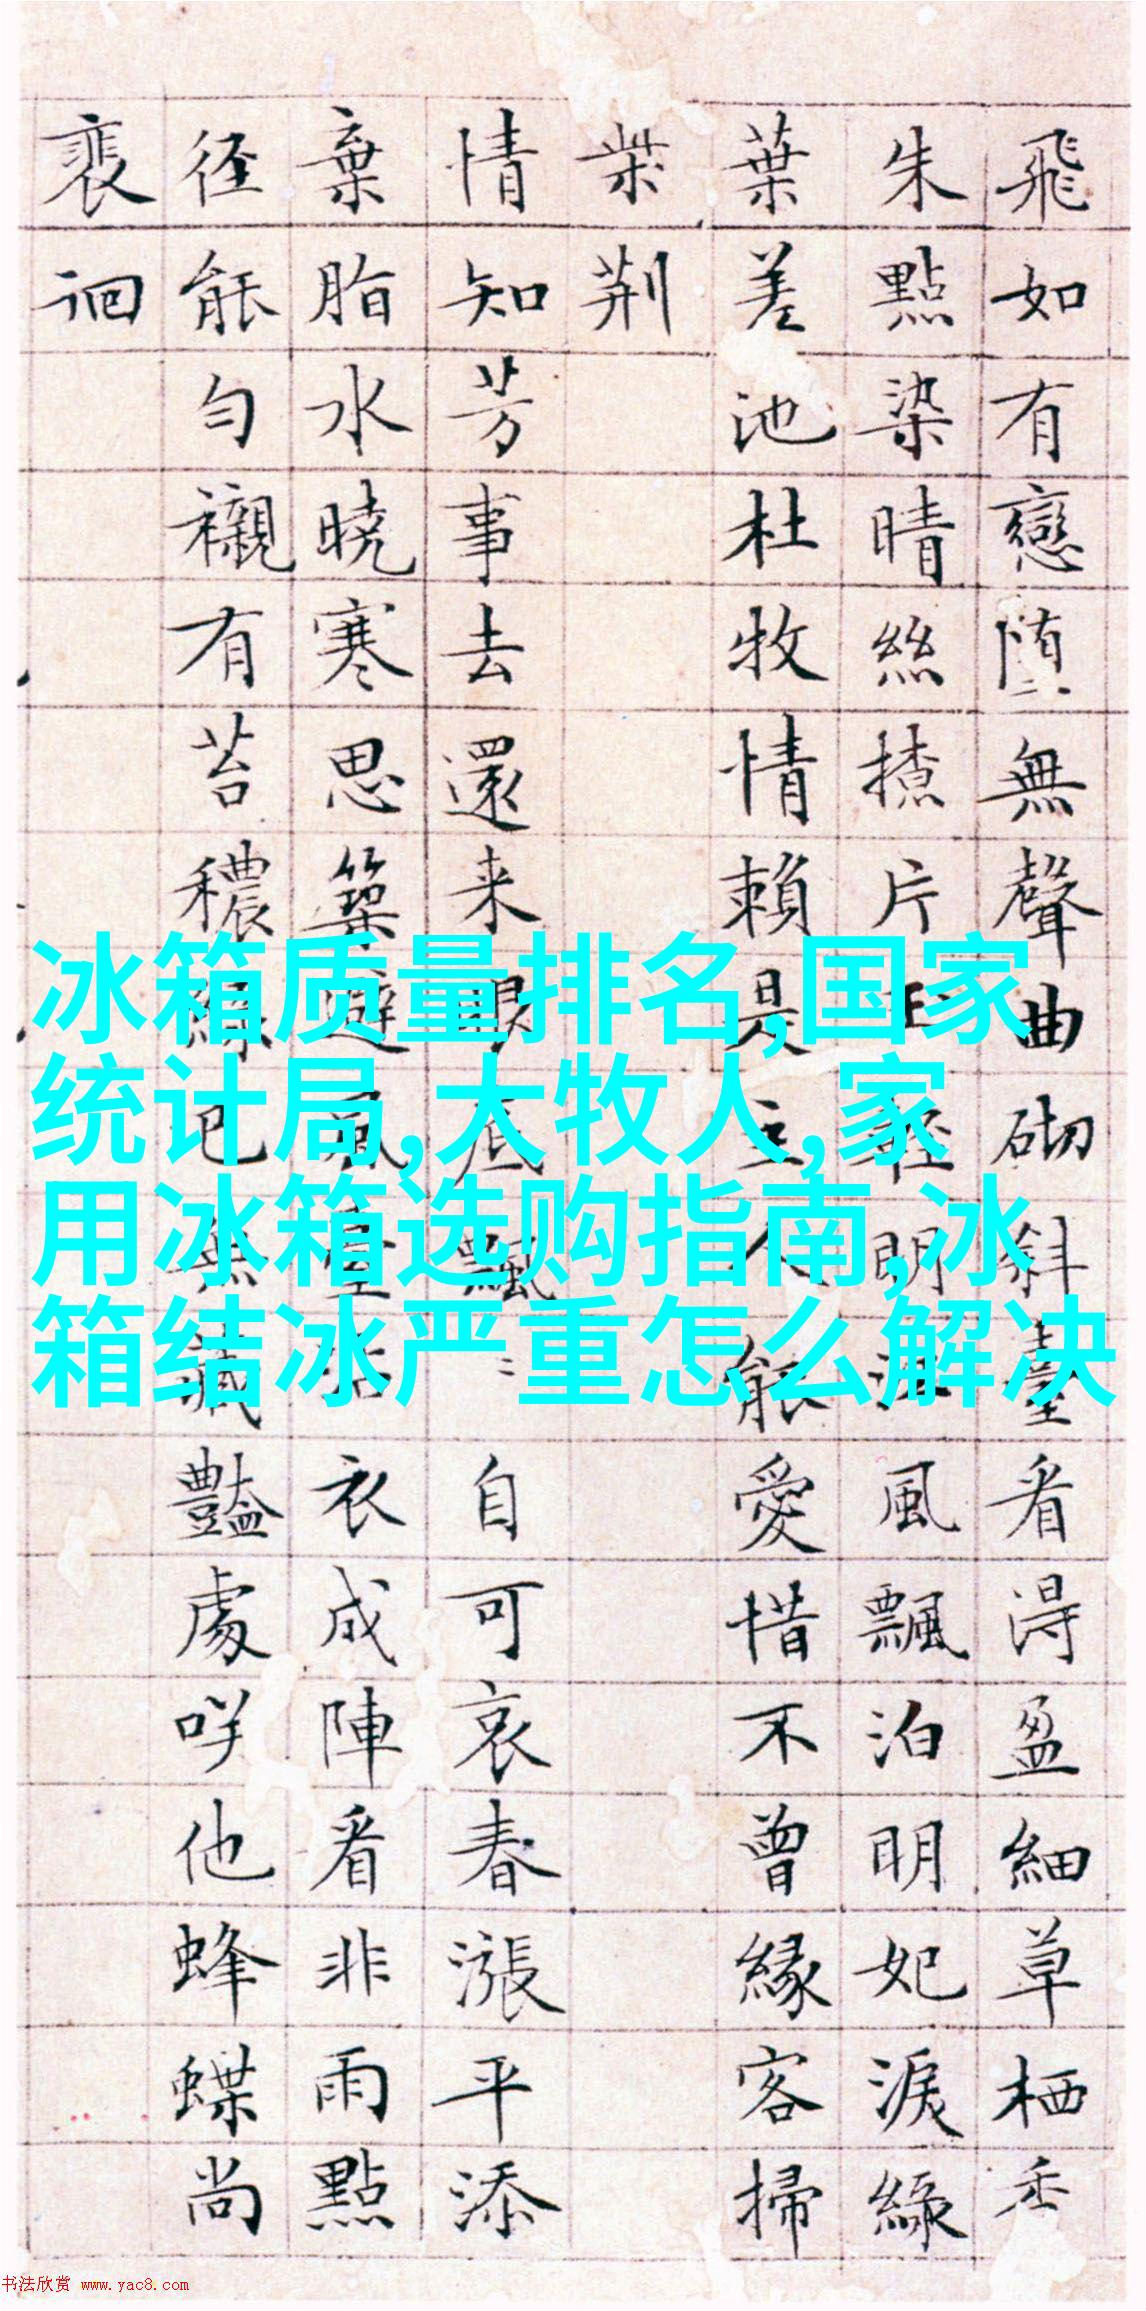 飛如有戀堕無聲曲砌斜臺看得盈細草栖香
朱點染晴絲撩片輕明風飄泊明妃淚綠
葉差池杜牧情賴是主人能愛惜不曾緣客掃
柴荆
情知芳事去還来眼底飄自可哀春漲平添
棄脂水晓寒思築避風臺沾衣成陣看非雨點
径能勻襯有苔穠綠已無豔處咲他蜂蝶尚
裵徊
冰箱质量排名,国家
统计局,大牧人,家
用冰箱选购指南,冰
箱结冰严重怎么解决
书法欣赏 www.yac8.com